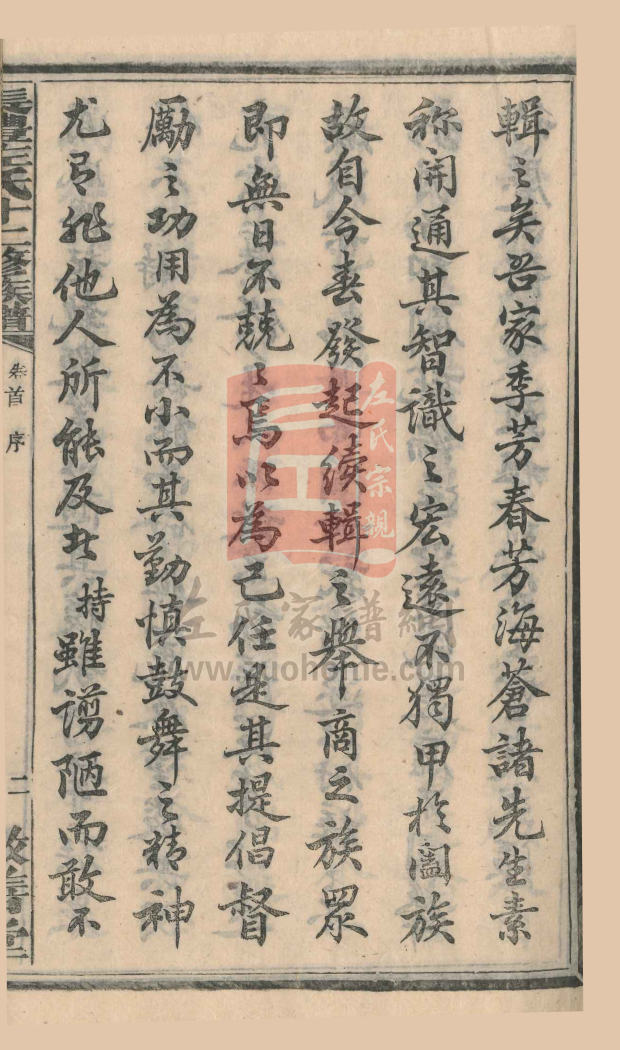 輯之矣吾家季芳春芳海蒼諸先生素
称開通其智識之宏遠不獨甲於闔族
故自今春發起續輯之舉商之族眾
即無日不兢〻焉以為己任是其提倡督
勵之功用為不小而其勤慎鼓舞之精神
尤有非他人所能及者持雖謭陋而敢不
左氏十二修族譜
卷首
序
二
敦睦堂
左氏宗親
左氏家譜網
www.zuohome.com